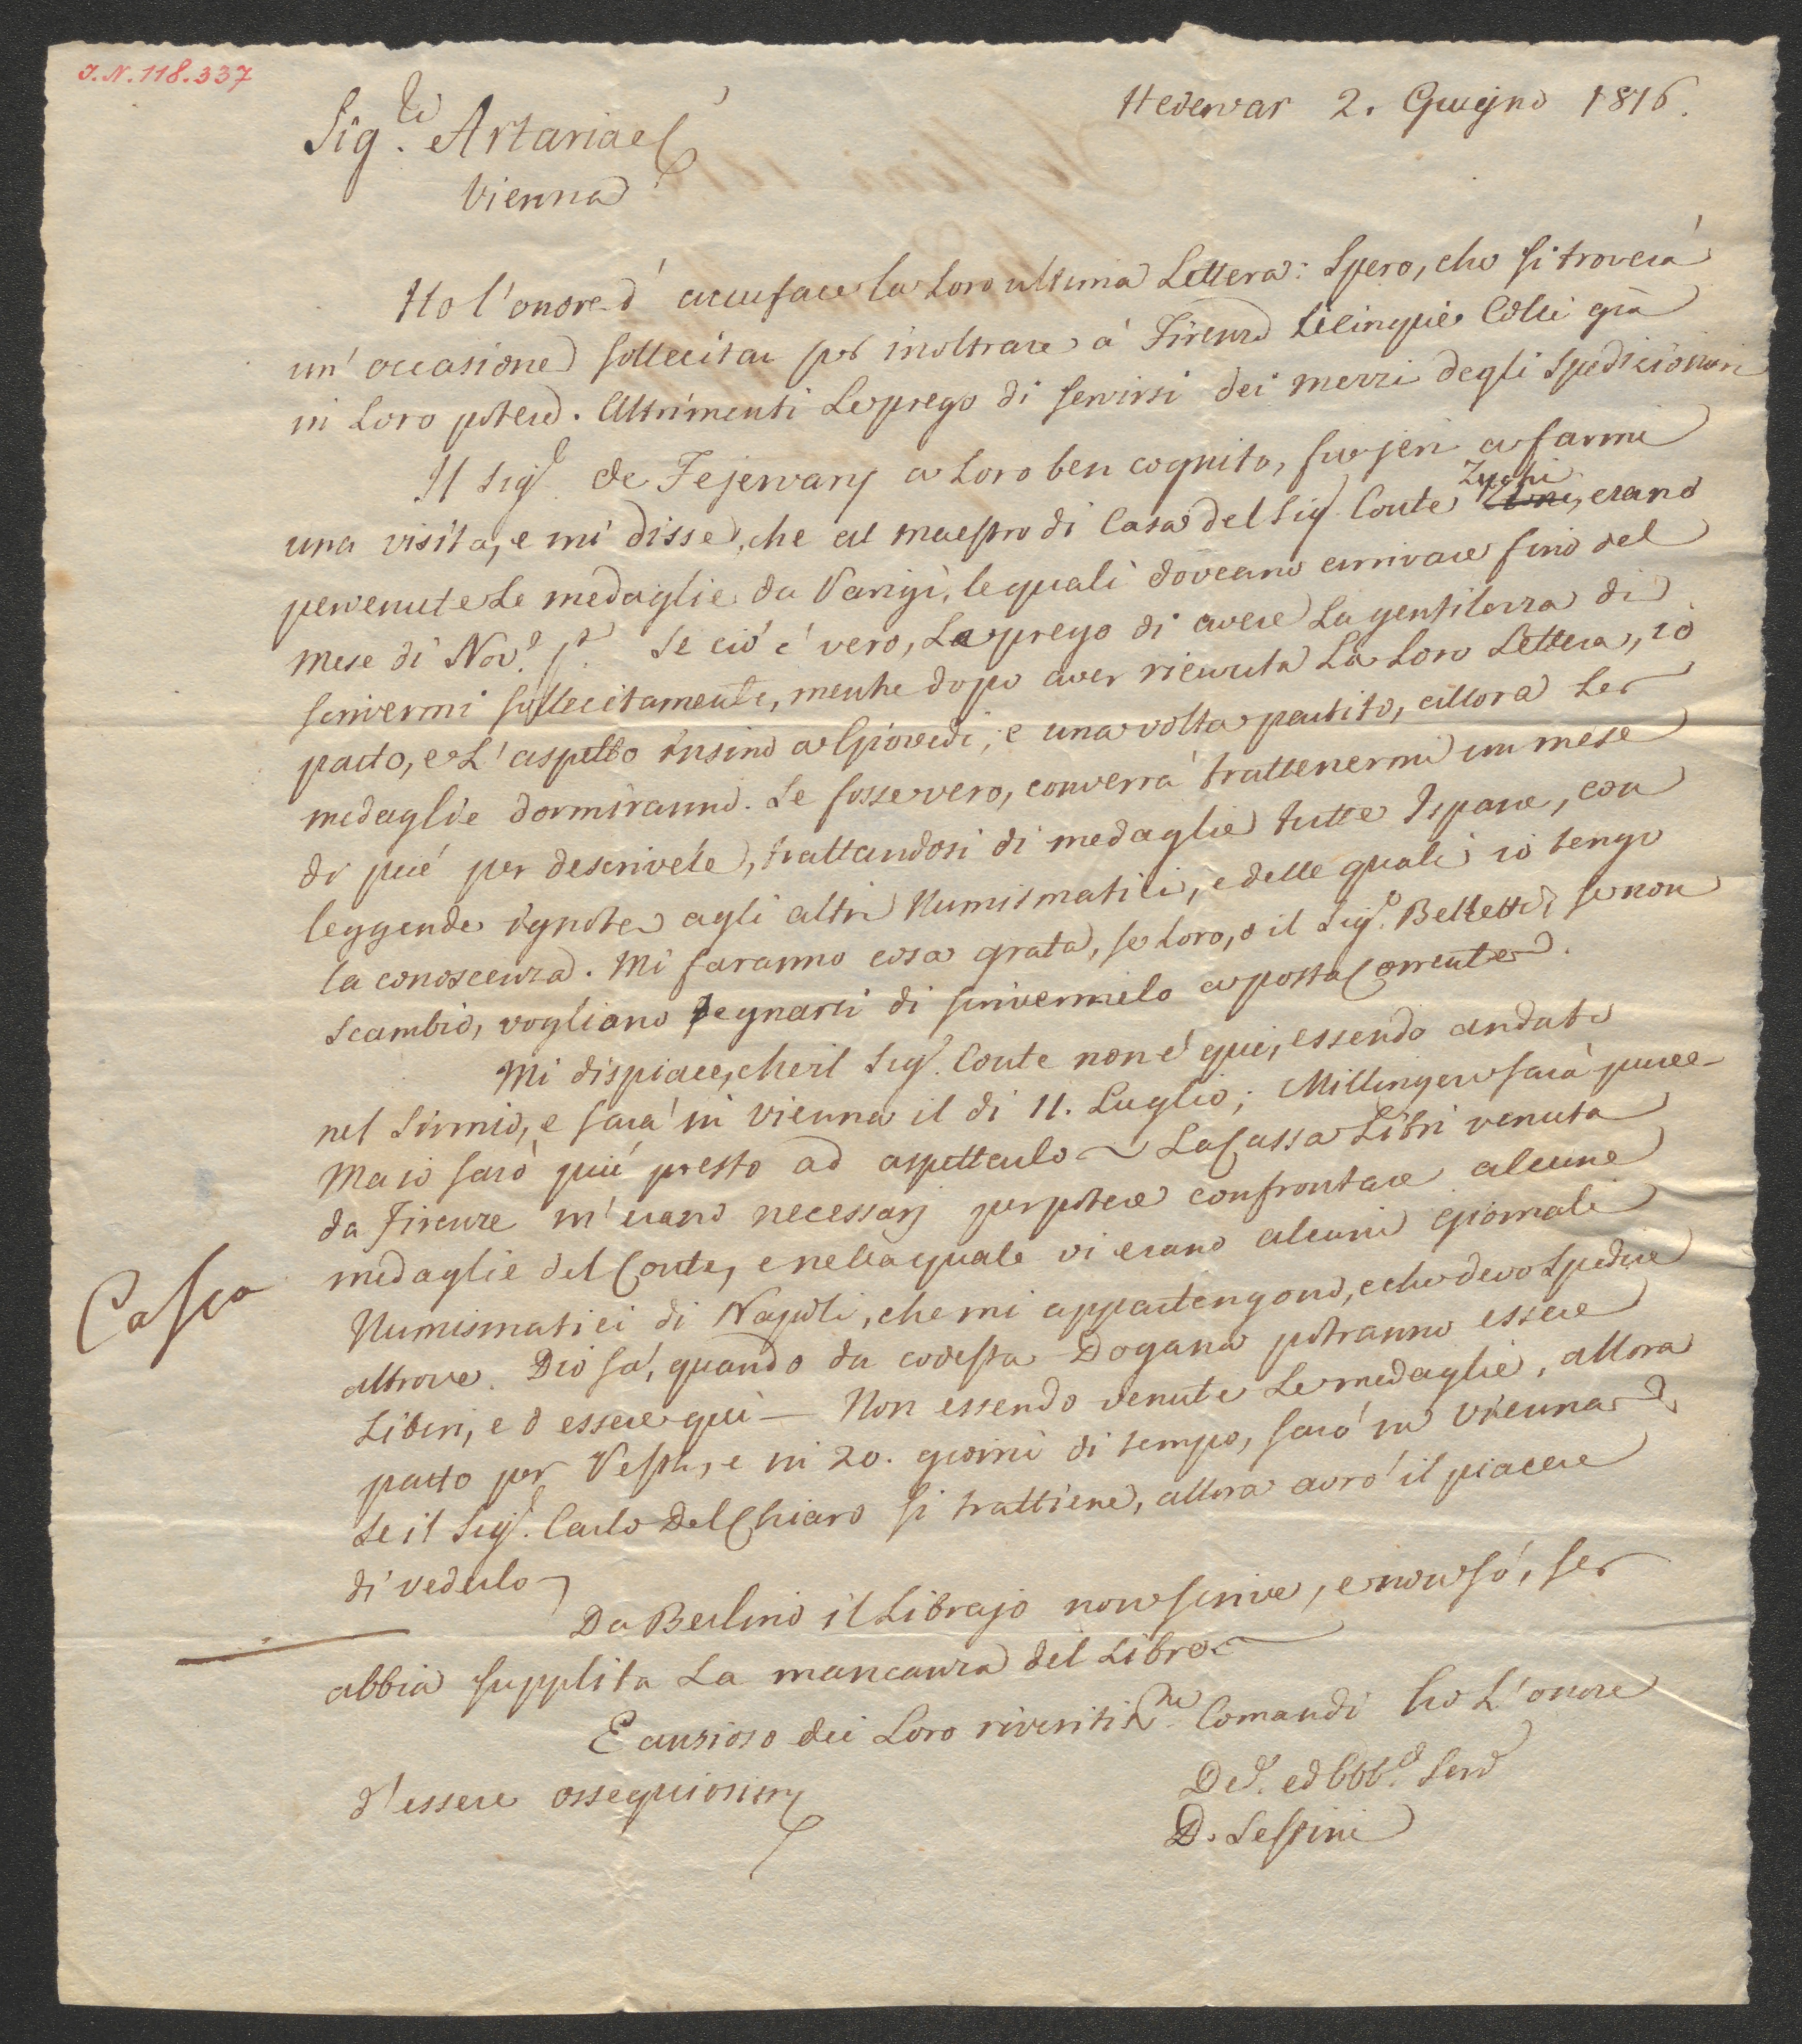 J.N. 118.337
Hedervar 2. Giugno 1816.
Sig.ri Artaria e C
Vienna
Ho l'onore d' accusare la Loro ultima Lettera: Spero, che si troverà
un' occasione sollecita per inoltrare à Firenze Le cinque Colli già
in Loro potere. Altrimenti Le prego di servirsi dei mezzi degli Spedizionari
Il Sig.e de Fejervary a Loro ben cognito, fu jeri a farmi
una visita, e mi disse, che al maestro di Casa del Sig. Conte Zychi, erano
pervenute Le medaglie da Parigi, le quali doveano arrivare fino del
mese di Nov.e p.o Se ciò è vero, Le prego di avere La gentilezza di
scrivermi sollecitamente, mentre dopo aver ricevuta La Loro Lettera, io
parto, e L'aspetto insino a Giovedi, e una volta partito, allora Le
medaglie dormiranno. Se fosse vero, converrà trattenermi un mese
di più per descriverle, trattandosi di medaglie tutte Ispane, con
leggende ignote agli altri Numismatici, e delle quali io tengo
la conoscenza. Mi faranno cosa grata, se Loro, o il Sig.e Belzetti, se non
scambio, vogliano degnarsi di scrivermelo a posta Corrente.
Mi dispiace, che il Sig. Conte non è qui, essendo andato
nel Sirmio, e sarà in Vienna il di 11. Luglio; Millingen sarà pure -
Ma io sarò più presto ad aspettarlo ~ La Cassa Libri venuta
da Firenze m'erano necessarj per potere confrontare alcune
medaglie del Conte, e nella quale vi erano alcuni giornali
Numismatici di Napoli, che mi appartengono, e che devo spedire
altrove. Dio sà, quando da codesta Dogana potranno essere
Liberi, ed essere qui — Non essendo venute Le medaglie, allora
parto per Pesth, e in 20. giorni di tempo, sarò in Vienna
Se il Sig. Carlo Del Chiaro si trattiene, allora avrò il piacere
di vederlo
Casca
Da Berlino il Librajo non scrive, e non sò, se
abbia supplita La mancanza del Libro
E ansioso dei Loro riveriti.mi Comandi ho L'onore
d'essere ossequiosam
De.o ed Obb.o Serv
D. Sestini